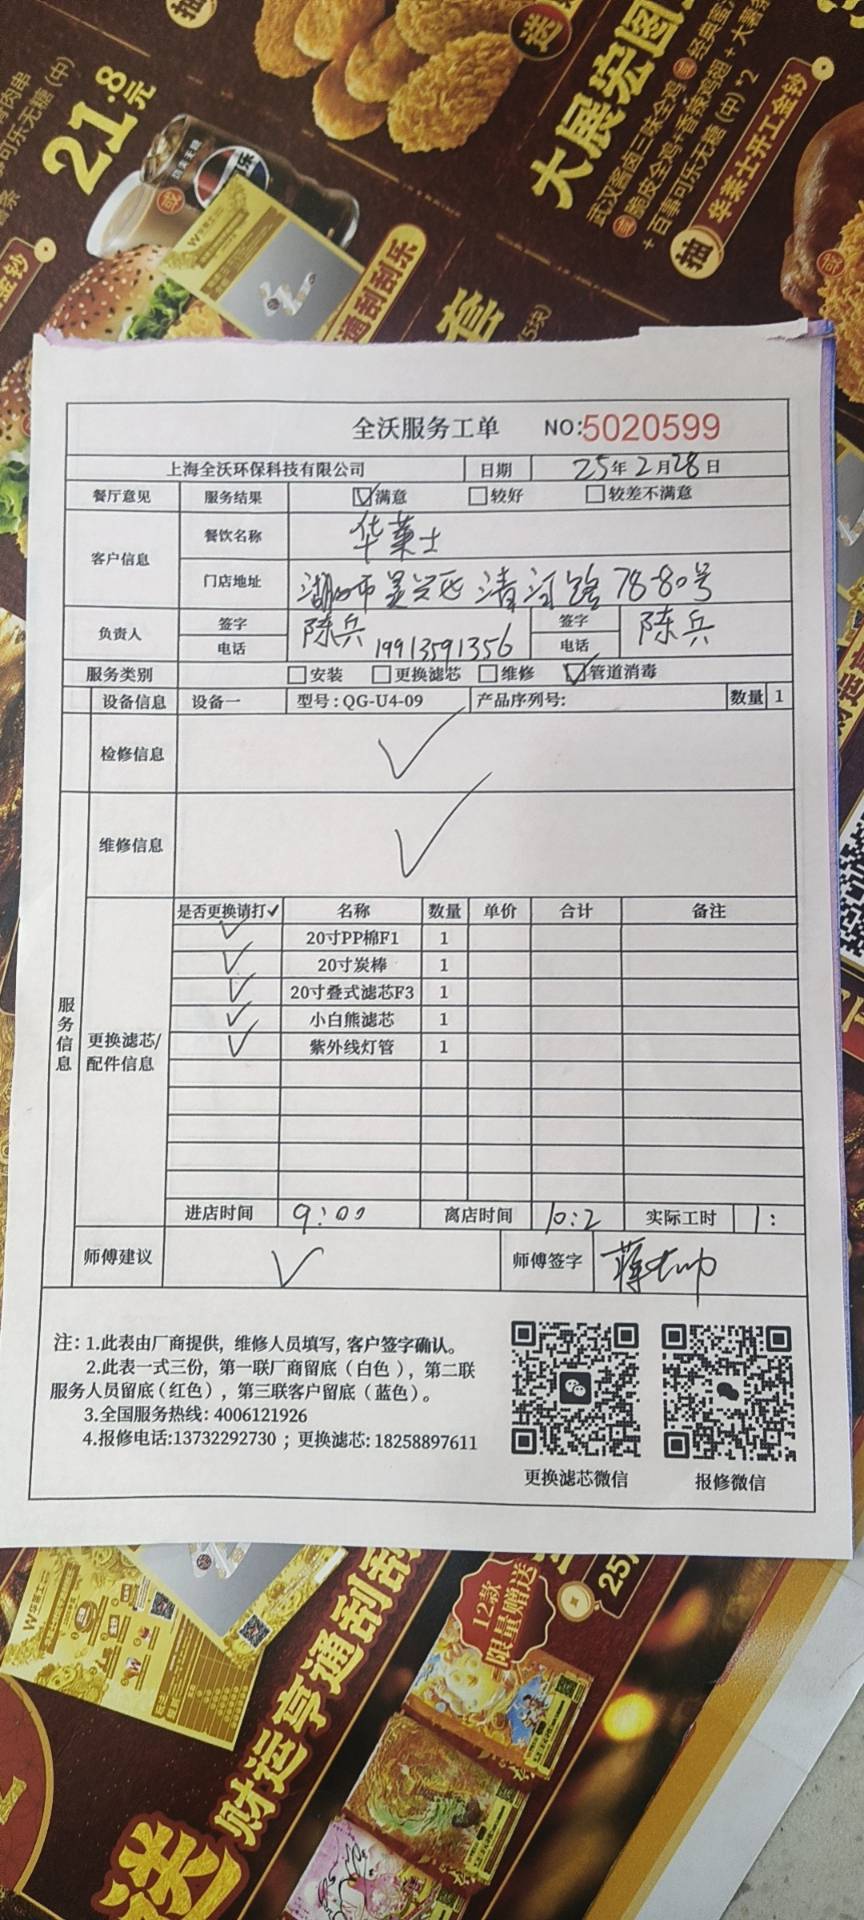 送
大展宏图
武汉酱卤三味全鸡
或
脆皮全鸡+香辣鸡翅+大薯条
+百事可乐无糖(中)*2
抽 华莱士开工金钞
21.8元
可乐无糖(中)
金钞
套
全沃服务工单 NO:5020599
上海全沃环保科技有限公司 日期 25年2月28日
餐厅意见 服务结果 ☑满意 □较好 □较差不满意
客户信息 餐饮名称 华莱士
门店地址 湖州市吴兴区清河路78-80号
负责人 签字 陈兵 签字 陈兵
电话 19913591356 电话
服务类别 □安装 □更换滤芯 □维修 ☑管道消毒
设备信息 设备一 型号:QG-U4-09 产品序列号: 数量 1
检修信息 ✓
服务信息
维修信息 ✓
更换滤芯/配件信息
是否更换请打✓ 名称 数量 单价 合计 备注
✓ 20寸PP棉F1 1
✓ 20寸炭棒 1
✓ 20寸叠式滤芯F3 1
✓ 小白熊滤芯 1
✓ 紫外线灯管 1
进店时间 9:00 离店时间 10:2 实际工时 1:
师傅建议 ✓ 师傅签字
注:1.此表由厂商提供,维修人员填写,客户签字确认。
2.此表一式三份,第一联厂商留底(白色),第二联
服务人员留底(红色),第三联客户留底(蓝色)。
3.全国服务热线:4006121926
4.报修电话:13732292730;更换滤芯:18258897611
更换滤芯微信 报修微信
12款
限量赠送
送
财运亨通刮刮